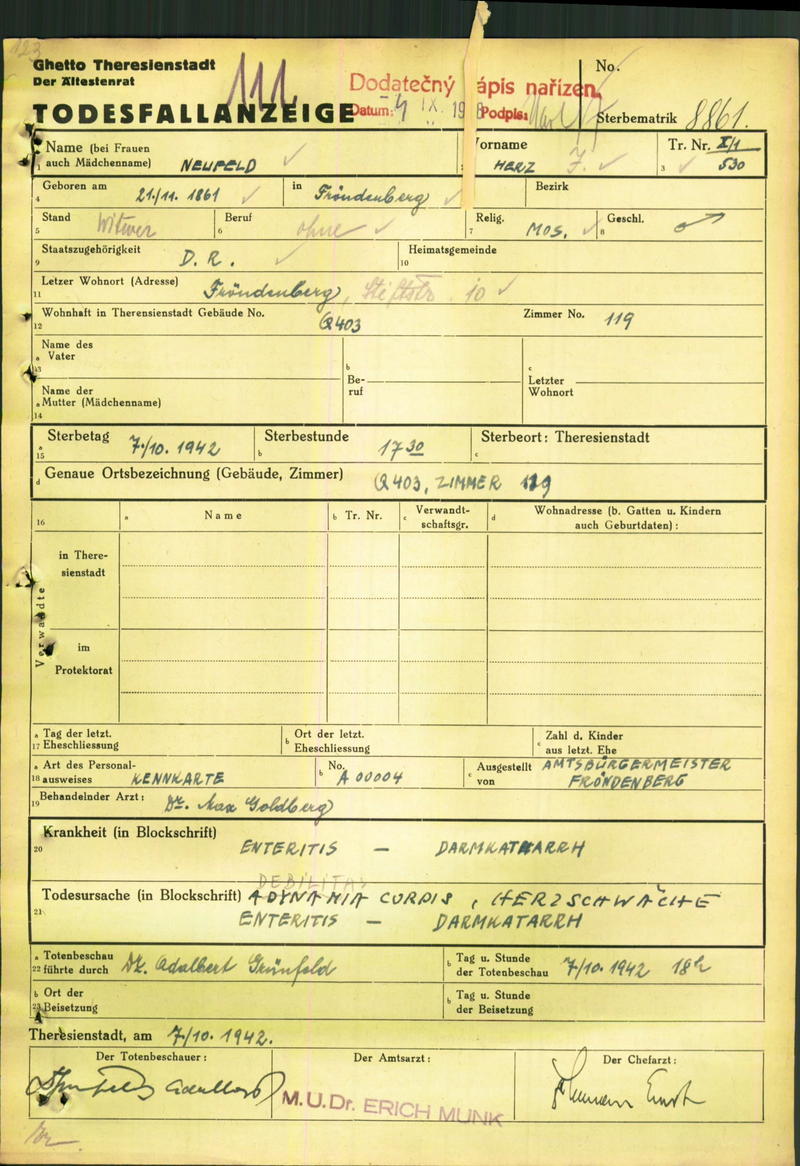 123
Ghetto Theresienstadt
Der Ältestenrat
111
TODESFALLANZEIGE
Dodatečný ápis nařízen.
Datum: 4 IX. 19 8 Podpis:
No.
Sterbematrik 8861.
Name (bei Frauen auch Mädchenname) NEUFELD
Vorname HERZ J.
3 Tr. Nr. X/1 530
4 Geboren am 21./11. 1861 in Fröndenberg Bezirk
5 Stand Witwer 6 Beruf ohne 7 Relig. MOS. 8 Geschl. ♂
9 Staatszugehörigkeit D. R. 10 Heimatsgemeinde
11 Letzer Wohnort (Adresse) Fröndenberg, Stiftstr. 10
12 Wohnhaft in Theresienstadt Gebäude No. Q403 Zimmer No. 119
a 13 Name des Vater
b Be-ruf
c Letzter Wohnort
a 14 Name der Mutter (Mädchenname)
a 15 Sterbetag 7./10. 1942 b Sterbestunde 17 30 c Sterbeort: Theresienstadt
d Genaue Ortsbezeichnung (Gebäude, Zimmer) Q403, ZIMMER 119
16 a Name b Tr. Nr. c Verwandt-schaftsgr. d Wohnadresse (b. Gatten u. Kindern auch Geburtdaten) :
Verwandte
in There-sienstadt
im Protektorat
a 17 Tag der letzt. Eheschliessung b Ort der letzt. Eheschliessung c Zahl d. Kinder aus letzt. Ehe
a 18 Art des Personal-ausweises KENNKARTE b No. A 00004 c Ausgestellt von AMTSBÜRGERMEISTER FRÖNDENBERG
19 Behandelnder Arzt: Dr. Max Goldberg
20 Krankheit (in Blockschrift)
ENTERITIS — DARMKATHARRH
DEBILITAS
21 Todesursache (in Blockschrift) ADYNAMIA CORDIS, HERZSCHWÄCHE
ENTERITIS — DARMKATARRH
a 22 Totenbeschau führte durch Dr. Adalbert Grünfeld b Tag u. Stunde der Totenbeschau 7/10. 1942 18h
b 23 Ort der Beisetzung b Tag u. Stunde der Beisetzung
Theresienstadt, am 7/10. 1942.
Der Totenbeschauer: Der Amtsarzt: Der Chefarzt:
M.U.Dr. ERICH MUNK